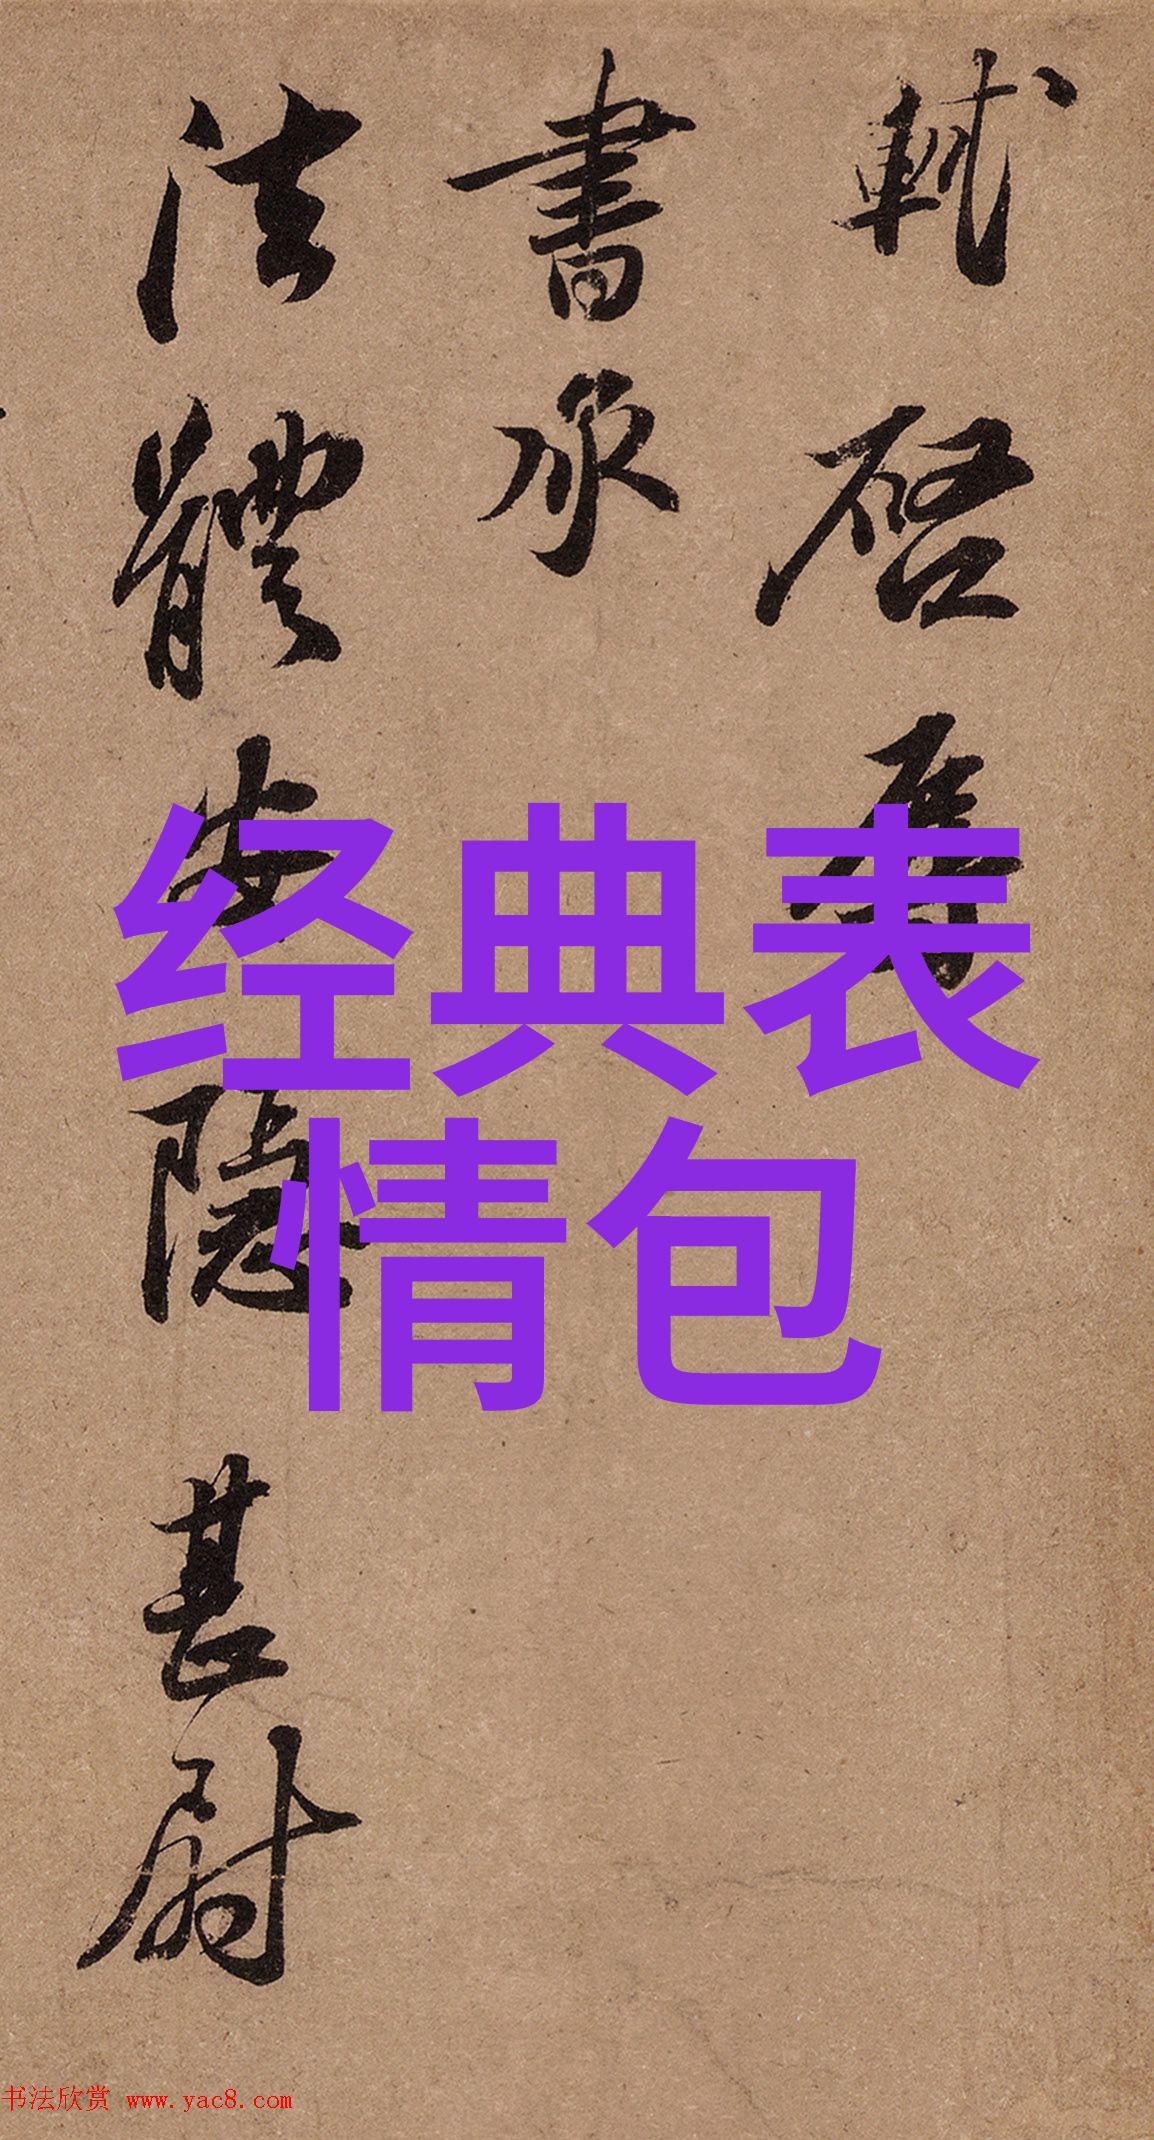 軾啓辱
書承
法體安隱甚慰
经典表
情包
书法欣赏 www.yac8.com